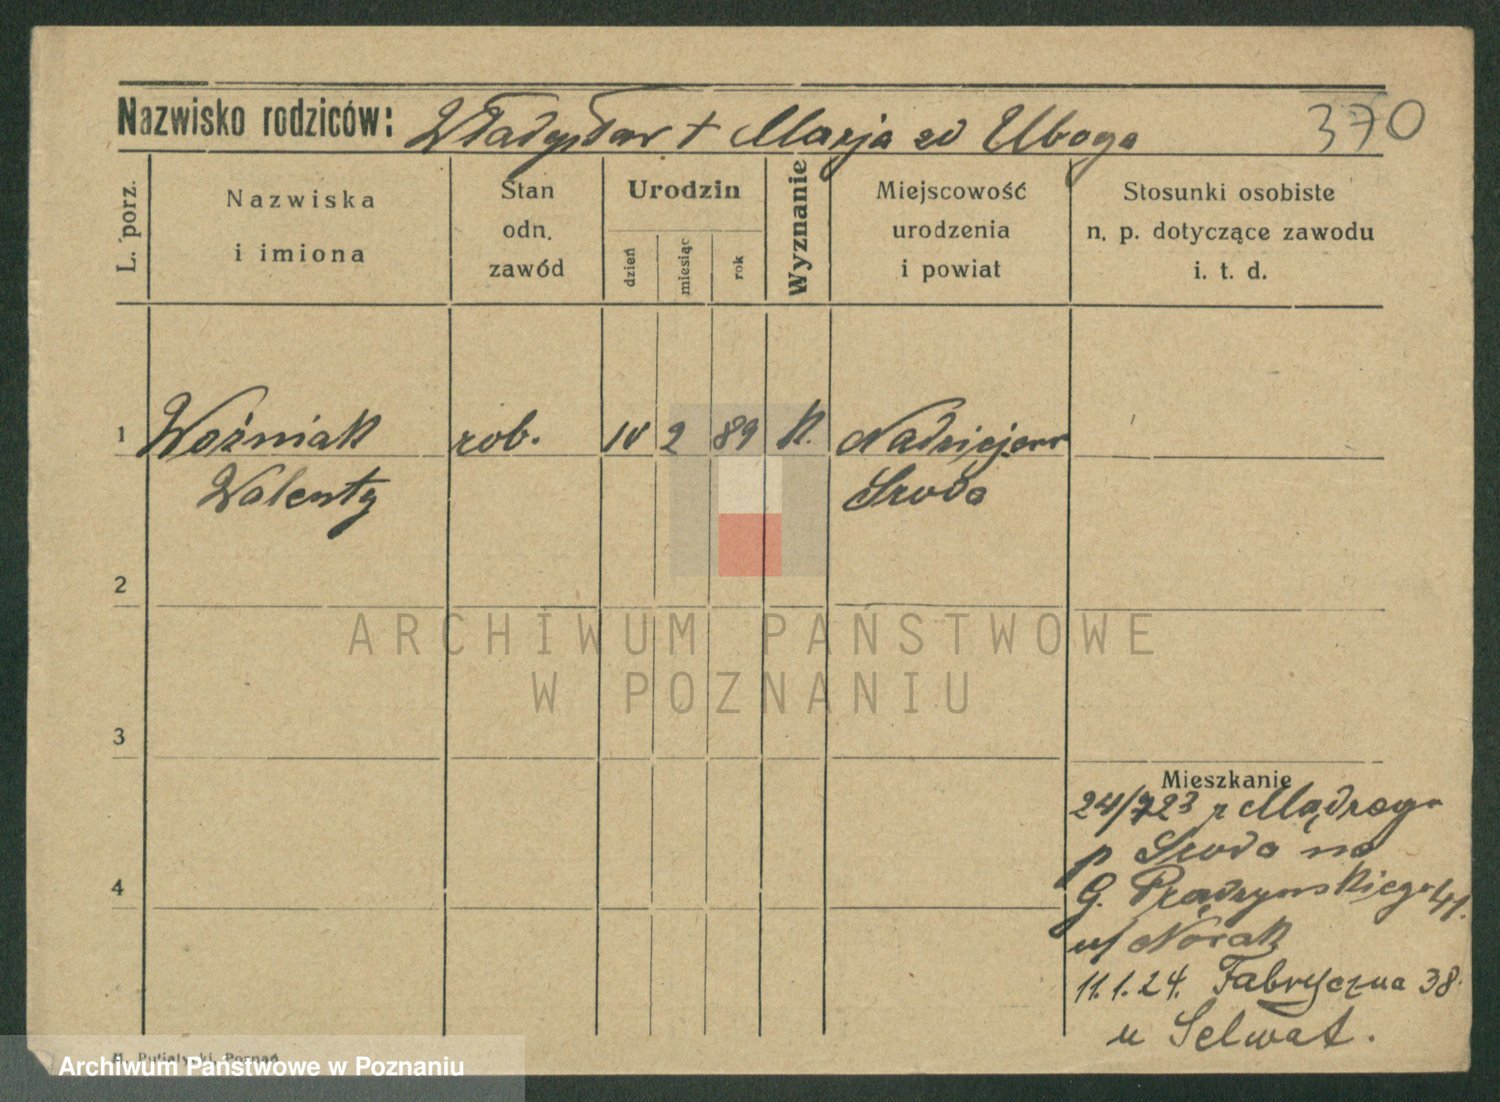 370
Nazwisko rodziców: Władysław + Marja zd Uboga
L. porz.
Nazwiska
i imiona
Stan
odn.
zawód
Urodzin
dzień
miesiąc
rok
Wyznanie
Miejscowość
urodzenia
i powiat
Stosunki osobiste
n. p. dotyczące zawodu
i. t. d.
1 Woźniak rob. 2 89 k. Nadziejewo
Walenty Sroda
2
ARCHIWUM PAŃSTWOWE
W POZNANIU
3
Mieszkanie
24/7 23 z Mądrego
p Sroda na
4
G. Prądzyńskiego 41.
u/ Nowak
11.1.24. Fabryczna 38.
u Selwat.
Putiatycki, Poznań
Archiwum Państwowe w Poznaniu